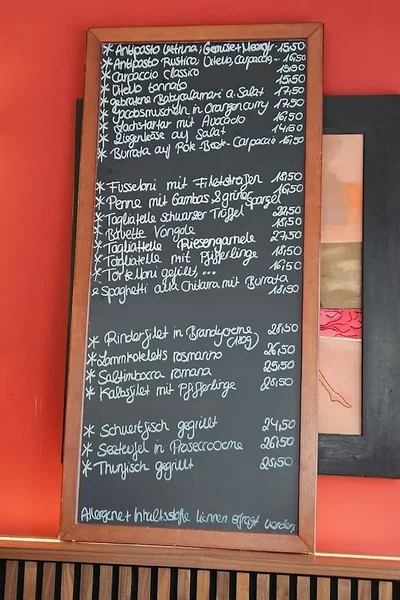 * Antipasto Vetrina, Gemüse + Meeresfr. 15,50
* Antipasto Rustica, Vitello, Carpaccio - 16,50
* Carpaccio Classico 15,50
* Vitello tonnato 15,50
* gebratene Babycalamari a. Salat 17,50
* Jacobsmuscheln in Orangencurry 17,50
* Lachstartar mit Avocado 16,50
* Ziegenkäse auf Salat 14,50
* Burrata auf Rote-Beete-Carpaccio 16,50
* Fusseloni mit Filetstreifen 18,50
* Penne mit Gambas & grüner Spargel 16,50
* Tagliatelle schwarzer Trüffel 22,50
* Bavette Vongole 18,50
* Tagliatelle Riesengarnele 27,50
* Tagliatelle mit Pfifferlinge 18,50
* Tortelloni gefüllt, ... 16,50
* Spaghetti alla Chitara mit Burrata 18,50
* Rinderfilet in Brandycreme 28,50
(180g)
* Lammkoteletts rosmarino 26,50
* Saltimbocca romana 25,50
* Kalbsfilet mit Pfifferlinge 28,50
* Schwertfisch gegrillt 24,50
* Seeteufel in Proseccocreme 26,50
* Thunfisch gegrillt 25,50
Allergene + Inhaltsstoffe können erfragt werden